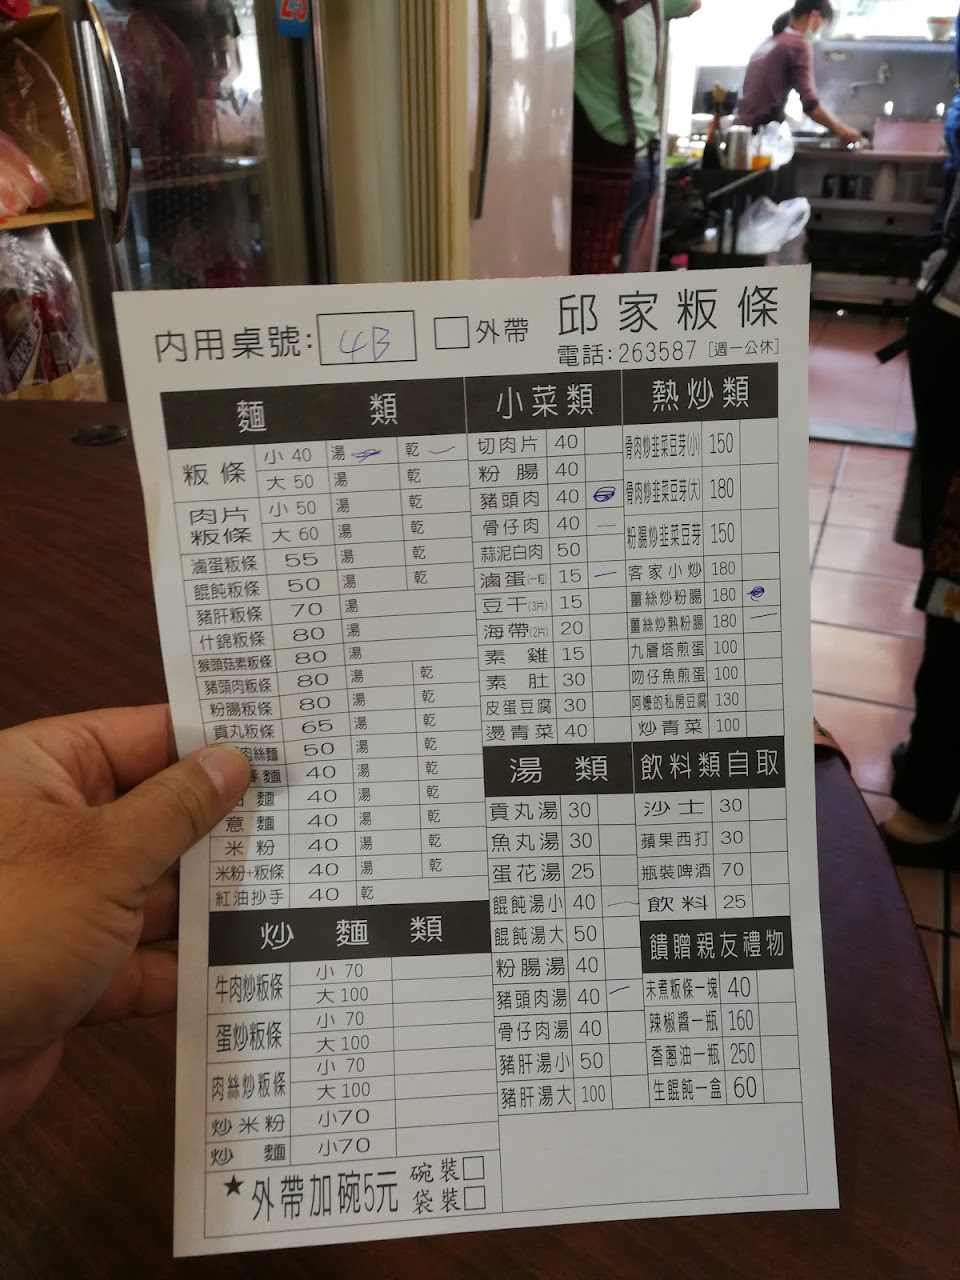 25
邱家粄條
內用桌號: 4B 外帶
電話:263587 [週一公休]
麵 類
粄條 小 40 湯 乾
大 50 湯 乾
肉片粄條 小 50 湯 乾
大 60 湯 乾
滷蛋粄條 55 湯 乾
餛飩粄條 50 湯 乾
豬肝粄條 70 湯
什錦粄條 80 湯
猴頭菇素粄條 80 湯
豬頭肉粄條 80 湯 乾
粉腸粄條 80 湯 乾
貢丸粄條 65 湯 乾
肉絲麵 50 湯 乾
麵 40 湯 乾
麵 40 湯 乾
意麵 40 湯 乾
米粉 40 湯 乾
米粉+粄條 40 湯 乾
紅油抄手 40 乾
炒 麵 類
牛肉炒粄條 小 70
大 100
蛋炒粄條 小 70
大 100
肉絲炒粄條 小 70
大 100
炒米粉 小70
炒 麵 小70
★外帶加碗5元 碗裝
袋裝
小菜類
切肉片 40
粉腸 40
豬頭肉 40
骨仔肉 40
蒜泥白肉 50
滷蛋(一粒) 15
豆干(3片) 15
海帶(2片) 20
素雞 15
素肚 30
皮蛋豆腐 30
燙青菜 40
湯 類
貢丸湯 30
魚丸湯 30
蛋花湯 25
餛飩湯小 40
餛飩湯大 50
粉腸湯 40
豬頭肉湯 40
骨仔肉湯 40
豬肝湯小 50
豬肝湯大 100
熱炒類
骨肉炒韭菜豆芽(小) 150
骨肉炒韭菜豆芽(大) 180
粉腸炒韭菜豆芽 150
客家小炒 180
薑絲炒粉腸 180
薑絲炒熟粉腸 180
九層塔煎蛋 100
吻仔魚煎蛋 100
阿嬤的私房豆腐 130
炒青菜 100
飲料類自取
沙士 30
蘋果西打 30
瓶裝啤酒 70
飲料 25
饋贈親友禮物
未煮粄條一塊 40
辣椒醬一瓶 160
香蔥油一瓶 250
生餛飩一盒 60